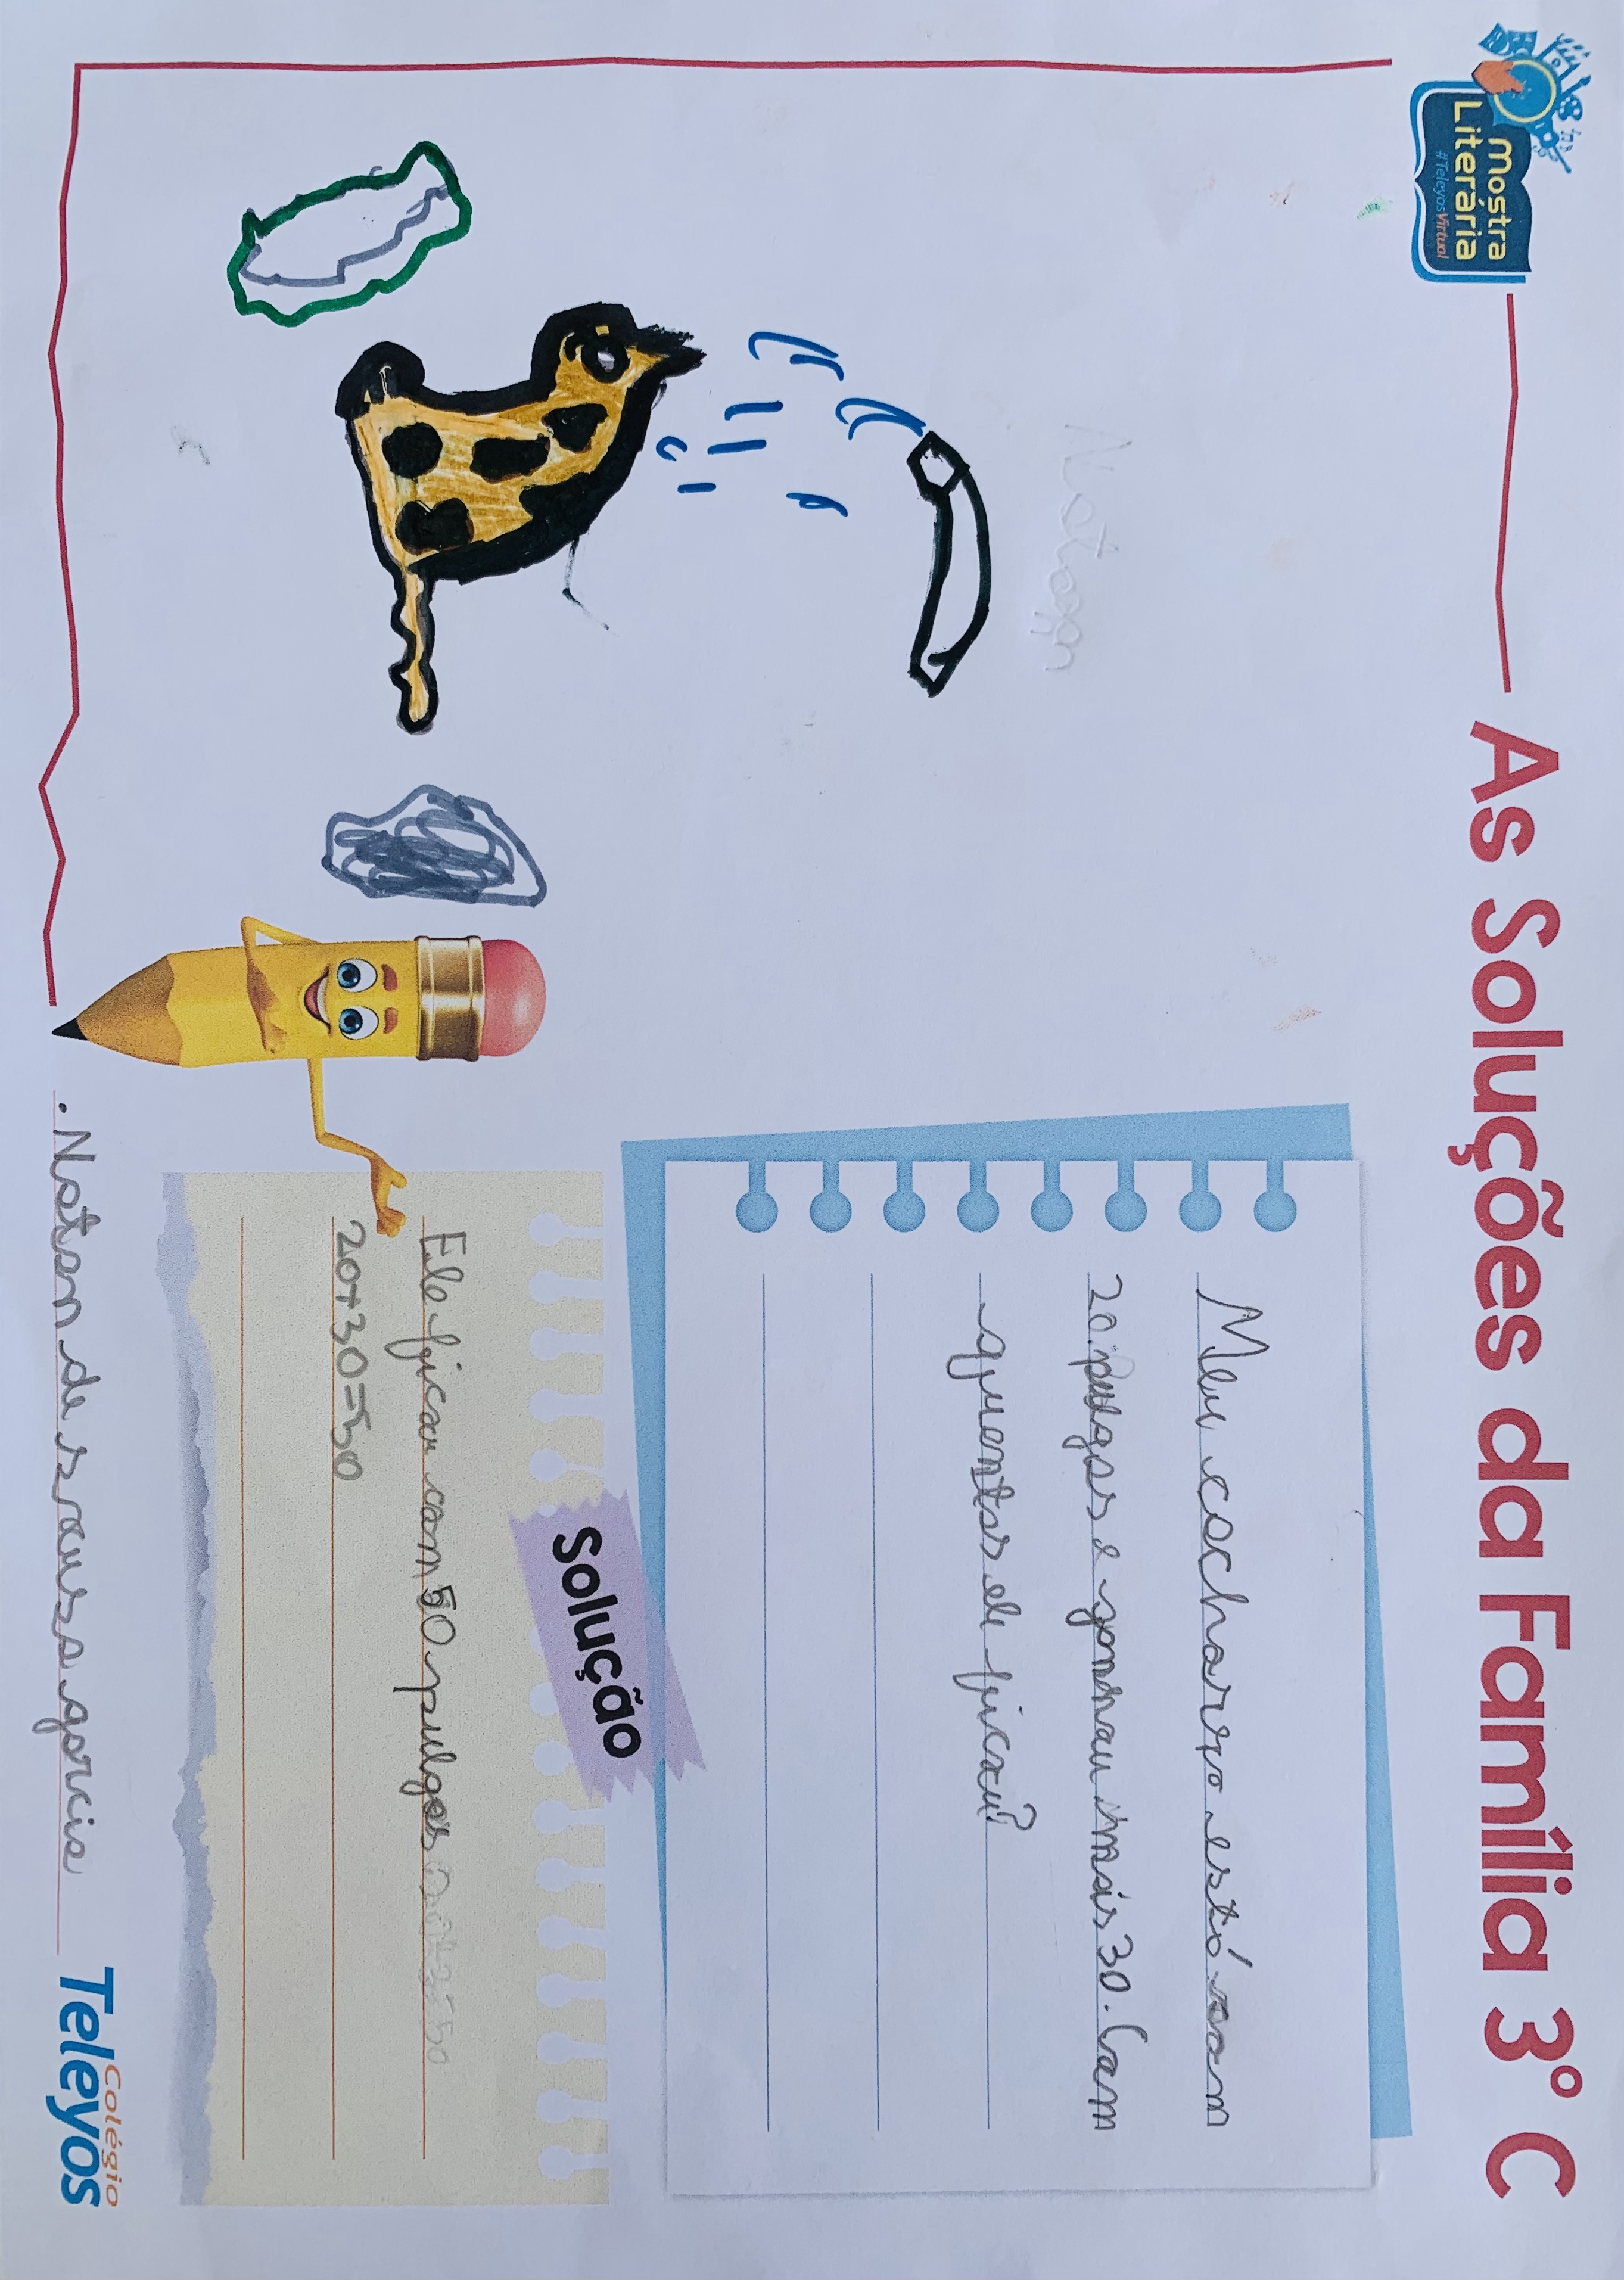 Mostra
Literária
#TeleyosVirtual
As Soluções da Família 3º C
Meu cachorro está com
20 pulgas e ganhou mais 30. Com
quantas ele ficou?
Solução
Ele ficou com 50 pulgas
20+30=50
Natan de sousa garcia
Colégio
Teleyos